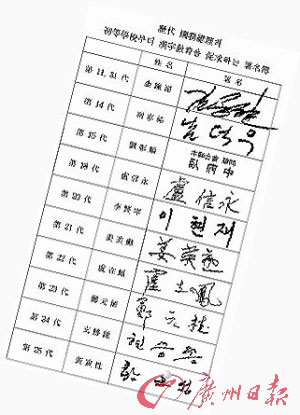 歷代 國務總理의
初等學校부터 漢字敎育을 促求하는 署名簿
姓名 署名
第11, 31代 金鍾泌 김종필
第14代 南悳祐 남덕우
第15代 劉彰順 臥病中
第18代 盧信永 盧信永
第20代 李賢宰 이현재
第21代 姜英勳 姜英勳
第22代 盧在鳳 盧在鳳
第23代 鄭元植 鄭元植
第24代 玄勝鍾 현승종
第25代 黃寅性
廣州日報